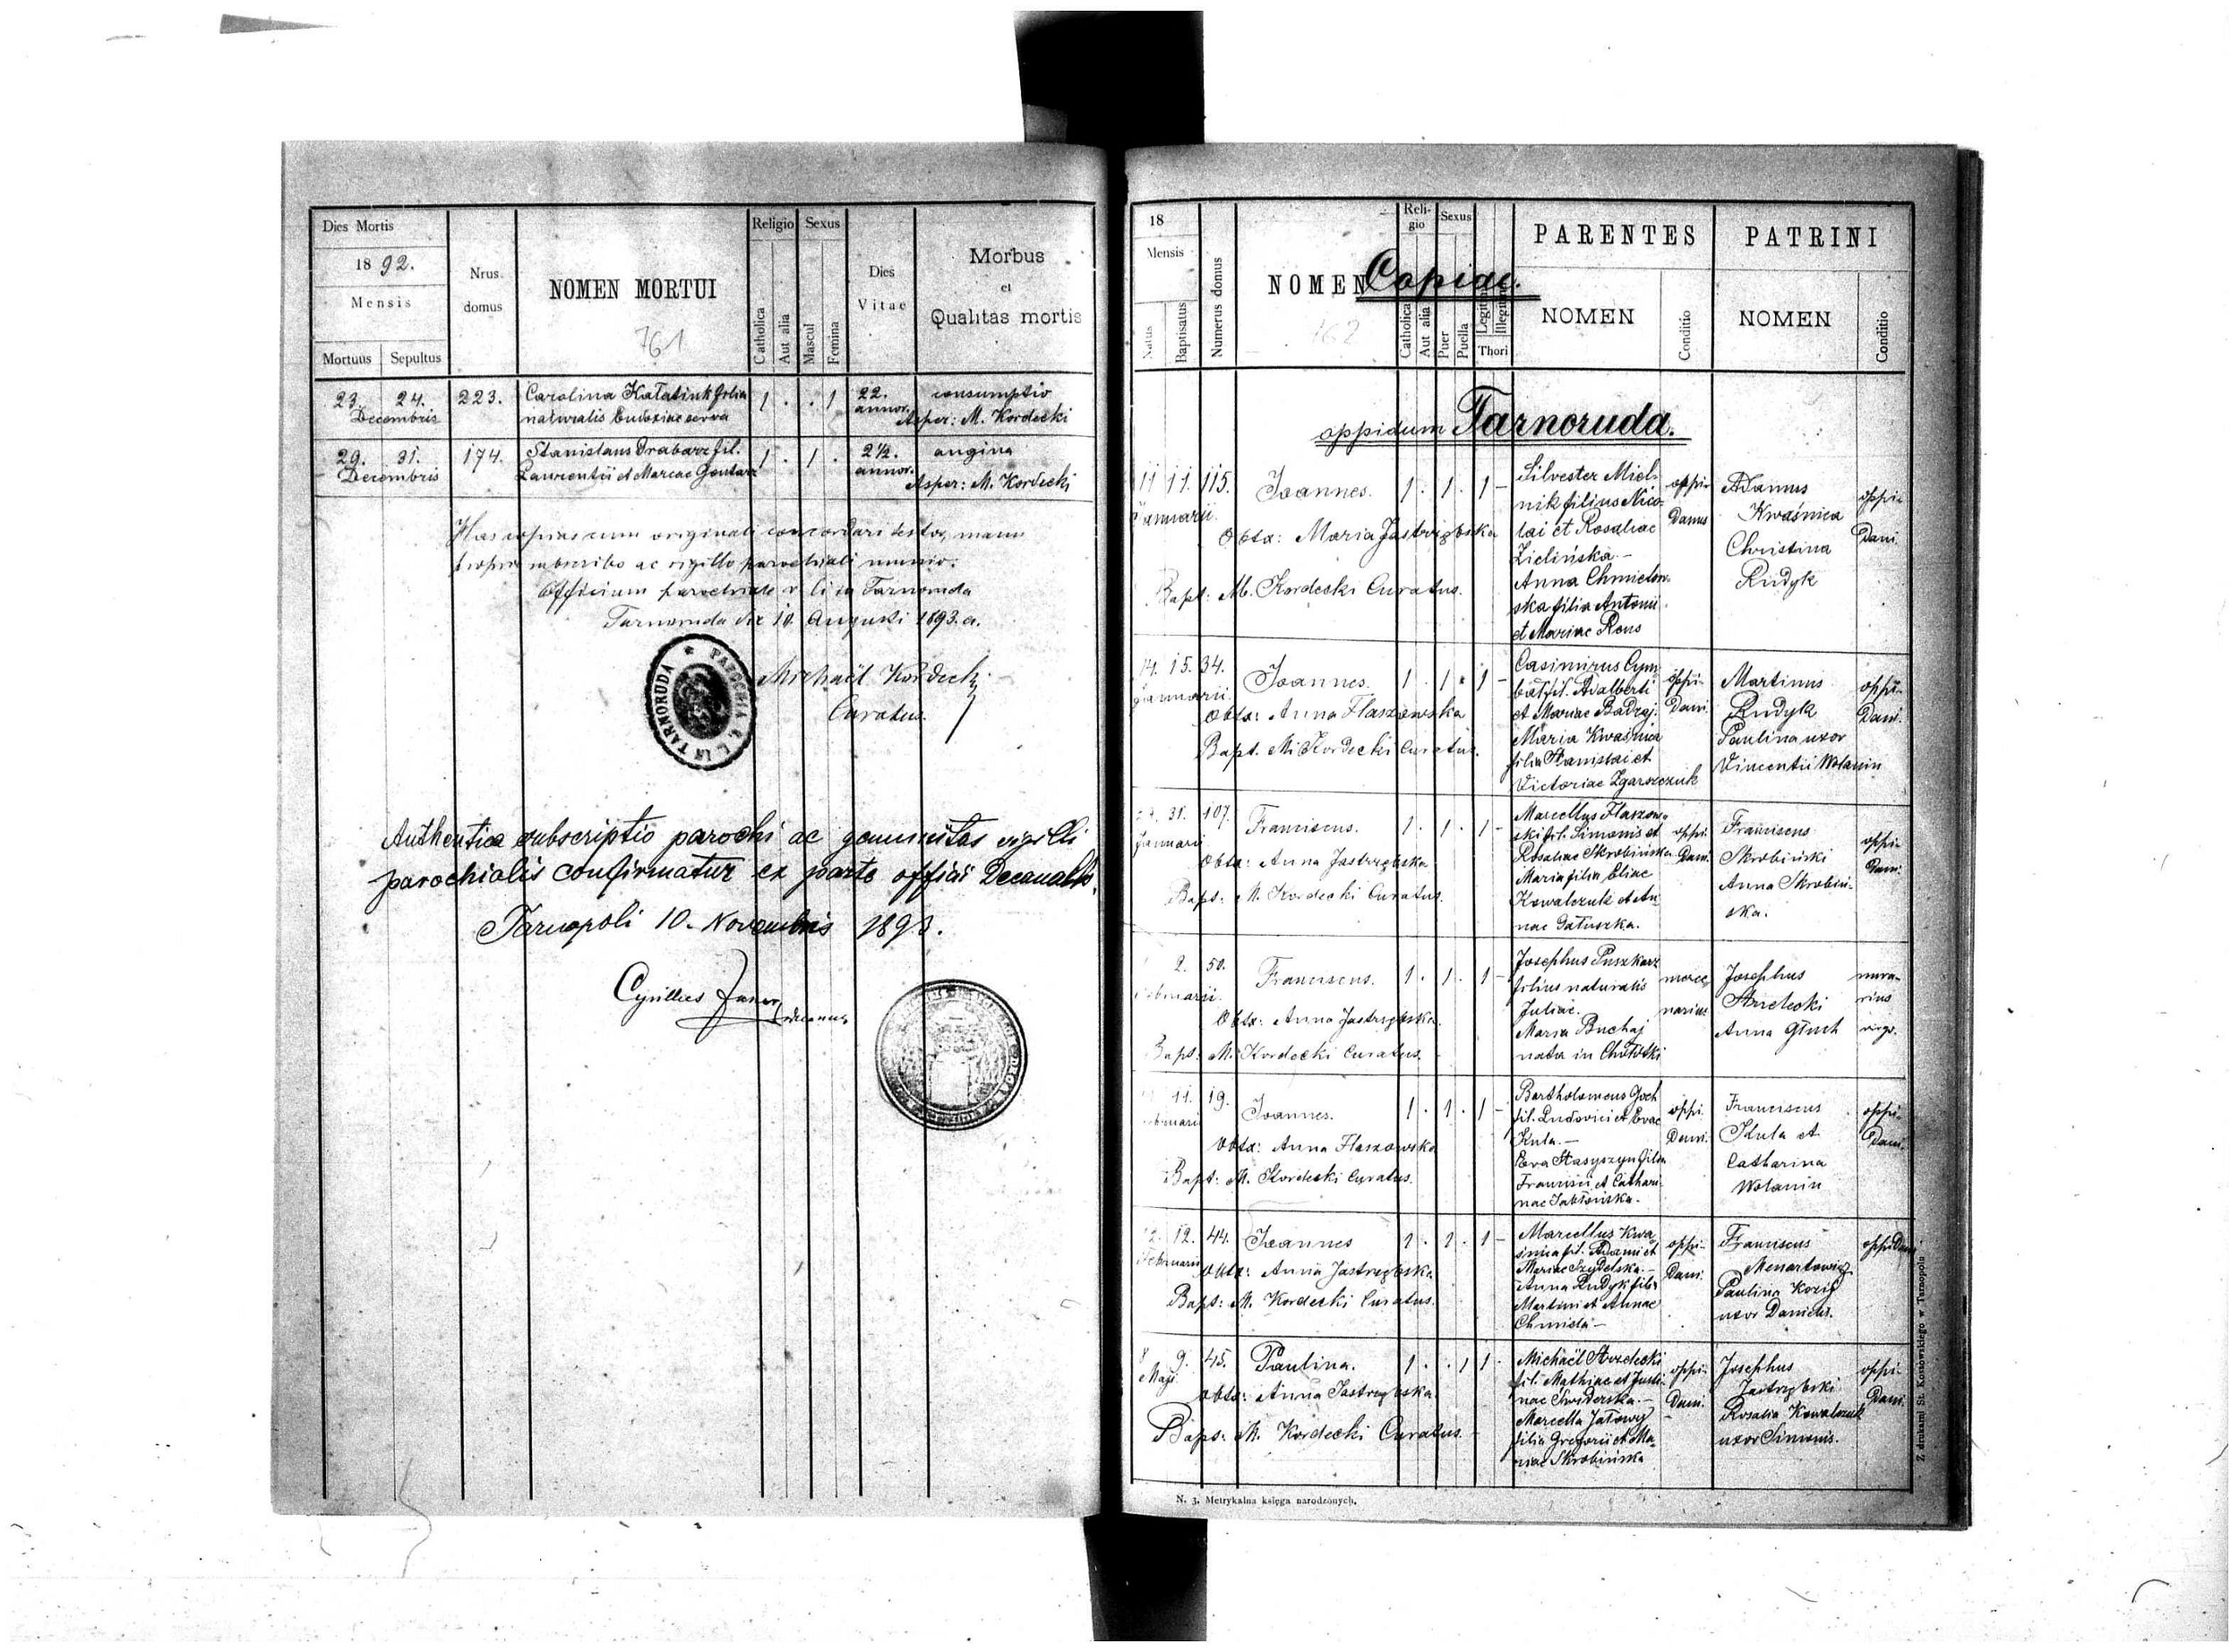 Dies Mortis
1892.
Mensis
Mortuus Sepultus
Nrus domus
NOMEN MORTUI
761
Religio
Catholica
Aut alia
Sexus
Mascul
Femina
Dies Vitae
Morbus
et
Qualitas mortis
23. 24. 223. Carolina Kałatiuk filia 1 . . 1 22. consumptio
Decembris naturalis Eudoxiae serva annor. Asper: M. Kordecki
29. 31. 174. Stanislaus Drabarz fil. 1 . 1 . 2½. angina
Decembris Laurentii et Mariae Gontarz annor. Asper: M. Kordecki
Has copias cum originali concordari testor, manu
propria subscribo ac sigillo parochiali munio.
Officium parochiale r. l. in Tarnoruda
Tarnoruda die 10. Augusti 1893. a.
Michaël Kordecki
Curatus.
PAROCHIA R. L. IN TARNORUDA
Authentica subscriptio parochi ac genuinitas sigilli
parochialis confirmatur ex parte officii Decanalis.
Tarnopoli 10. Novembris 1893.
Cyrillus
decanus
18
Mensis
Natus
Baptisatus
Numerus domus
NOMEN
Copiae.
162
Religio
Catholica
Aut alia
Sexus
Puer
Puella
Legitimi
Illegitimi
Thori
PARENTES
NOMEN
Conditio
PATRINI
NOMEN
Conditio
oppidum Tarnoruda.
11 11. 115. Joannes. 1 . 1 . 1 -
Januarii
Obtx: Maria Jastrzębska
Bapt: M. Kordecki Curatus.
Silvester Miel-
nik filius Nico-
lai et Rosaliae
Zielińska. -
Anna Chmielow-
ska filia Antonii
et Mariae Rens
oppi-
danus
Adamus
Kwaśnica
Christina
Rudyk
oppi-
dani
14. 15. 34. Joannes. 1 . 1 . 1 -
Januarii
Obtx: Anna Flaszowska
Bapt. M. Kordecki Curatus.
Casimirus Cym-
bał fil. Adalberti
et Mariae Badzaj.
Maria Kwaśnica
filia Stanislai et
Victoriae Zgarszczuk
oppi-
dani.
Martinus
Rudyk
Paulina uxor
Vincentii Wolanin
oppi-
dani.
31. 107. Franciscus. 1 . 1 . 1 -
Januarii
Obtx: Anna Jastrzębska
Bapt: M. Kordecki Curatus.
Marcellus Flaszow-
ski fil. Simonis et
Rosaliae Skrobińska
Maria filia Eliae
Kowalczuk et An-
nae Gałuszka.
oppi-
dani.
Franciscus
Skrobiński
Anna Skrobiń-
ska.
oppi-
dani.
2. 50. Franciscus. 1 . 1 . 1 -
Februarii.
Obtx: Anna Jastrzębska.
Bapt: M. Kordecki Curatus.
Josephus Puszkarz
filius naturalis
Juliae.
Maria Buchaj
nata in
merce-
narius
Josephus
Strzelecki
Anna Głuch
mura-
rius
virgo.
11. 19. Joannes. 1 . 1 . 1 -
Februarii
Obtx: Anna Flaszowska
Bapt: M. Kordecki Curatus.
Bartholomeus Goch
fil. Ludovici et Evae
Kula. -
Eva Stasyszyn filia
Francisci et Cathari-
nae Jabłońska.
oppi-
dani.
Franciscus
Kula et
Catharina
Wolanin
oppi-
dani.
12. 12. 44. Joannes 1 . 1 . 1 -
Februarii
Obtx: Anna Jastrzębska
Bapt: M. Kordecki Curatus.
Marcellus Kwa-
śnica fil. Adami et
Mariae Szydelska. -
Anna Rudyk filia
Martini et Annae
Chmiela -
oppi-
dani.
Franciscus
Menartowicz
Paulina Kozij
uxor Danielis.
oppidani
8 9. 45. Paulina. 1 . . 1 1 -
Maji
Obtx: Anna Jastrzębska.
Bapt: M. Kordecki Curatus.
Michaël Strzelecki
fil. Mathiae et Justi-
nae Świderska. -
Marcella Jałowy
filia Gregorii et Ma-
riae Skrobińska
oppi-
dani.
Josephus
Jastrzębski
Rosalia Kowalczuk
uxor Simonis.
oppi-
dani.
N. 3. Metrykalna księga narodzonych.
Z drukarni St. Kossowskiego w Tarnopolu